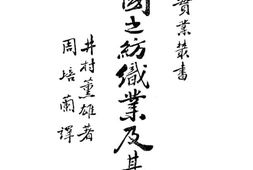 實業叢書
國之紡織業及其
井村薰雄著
周培蘭譯